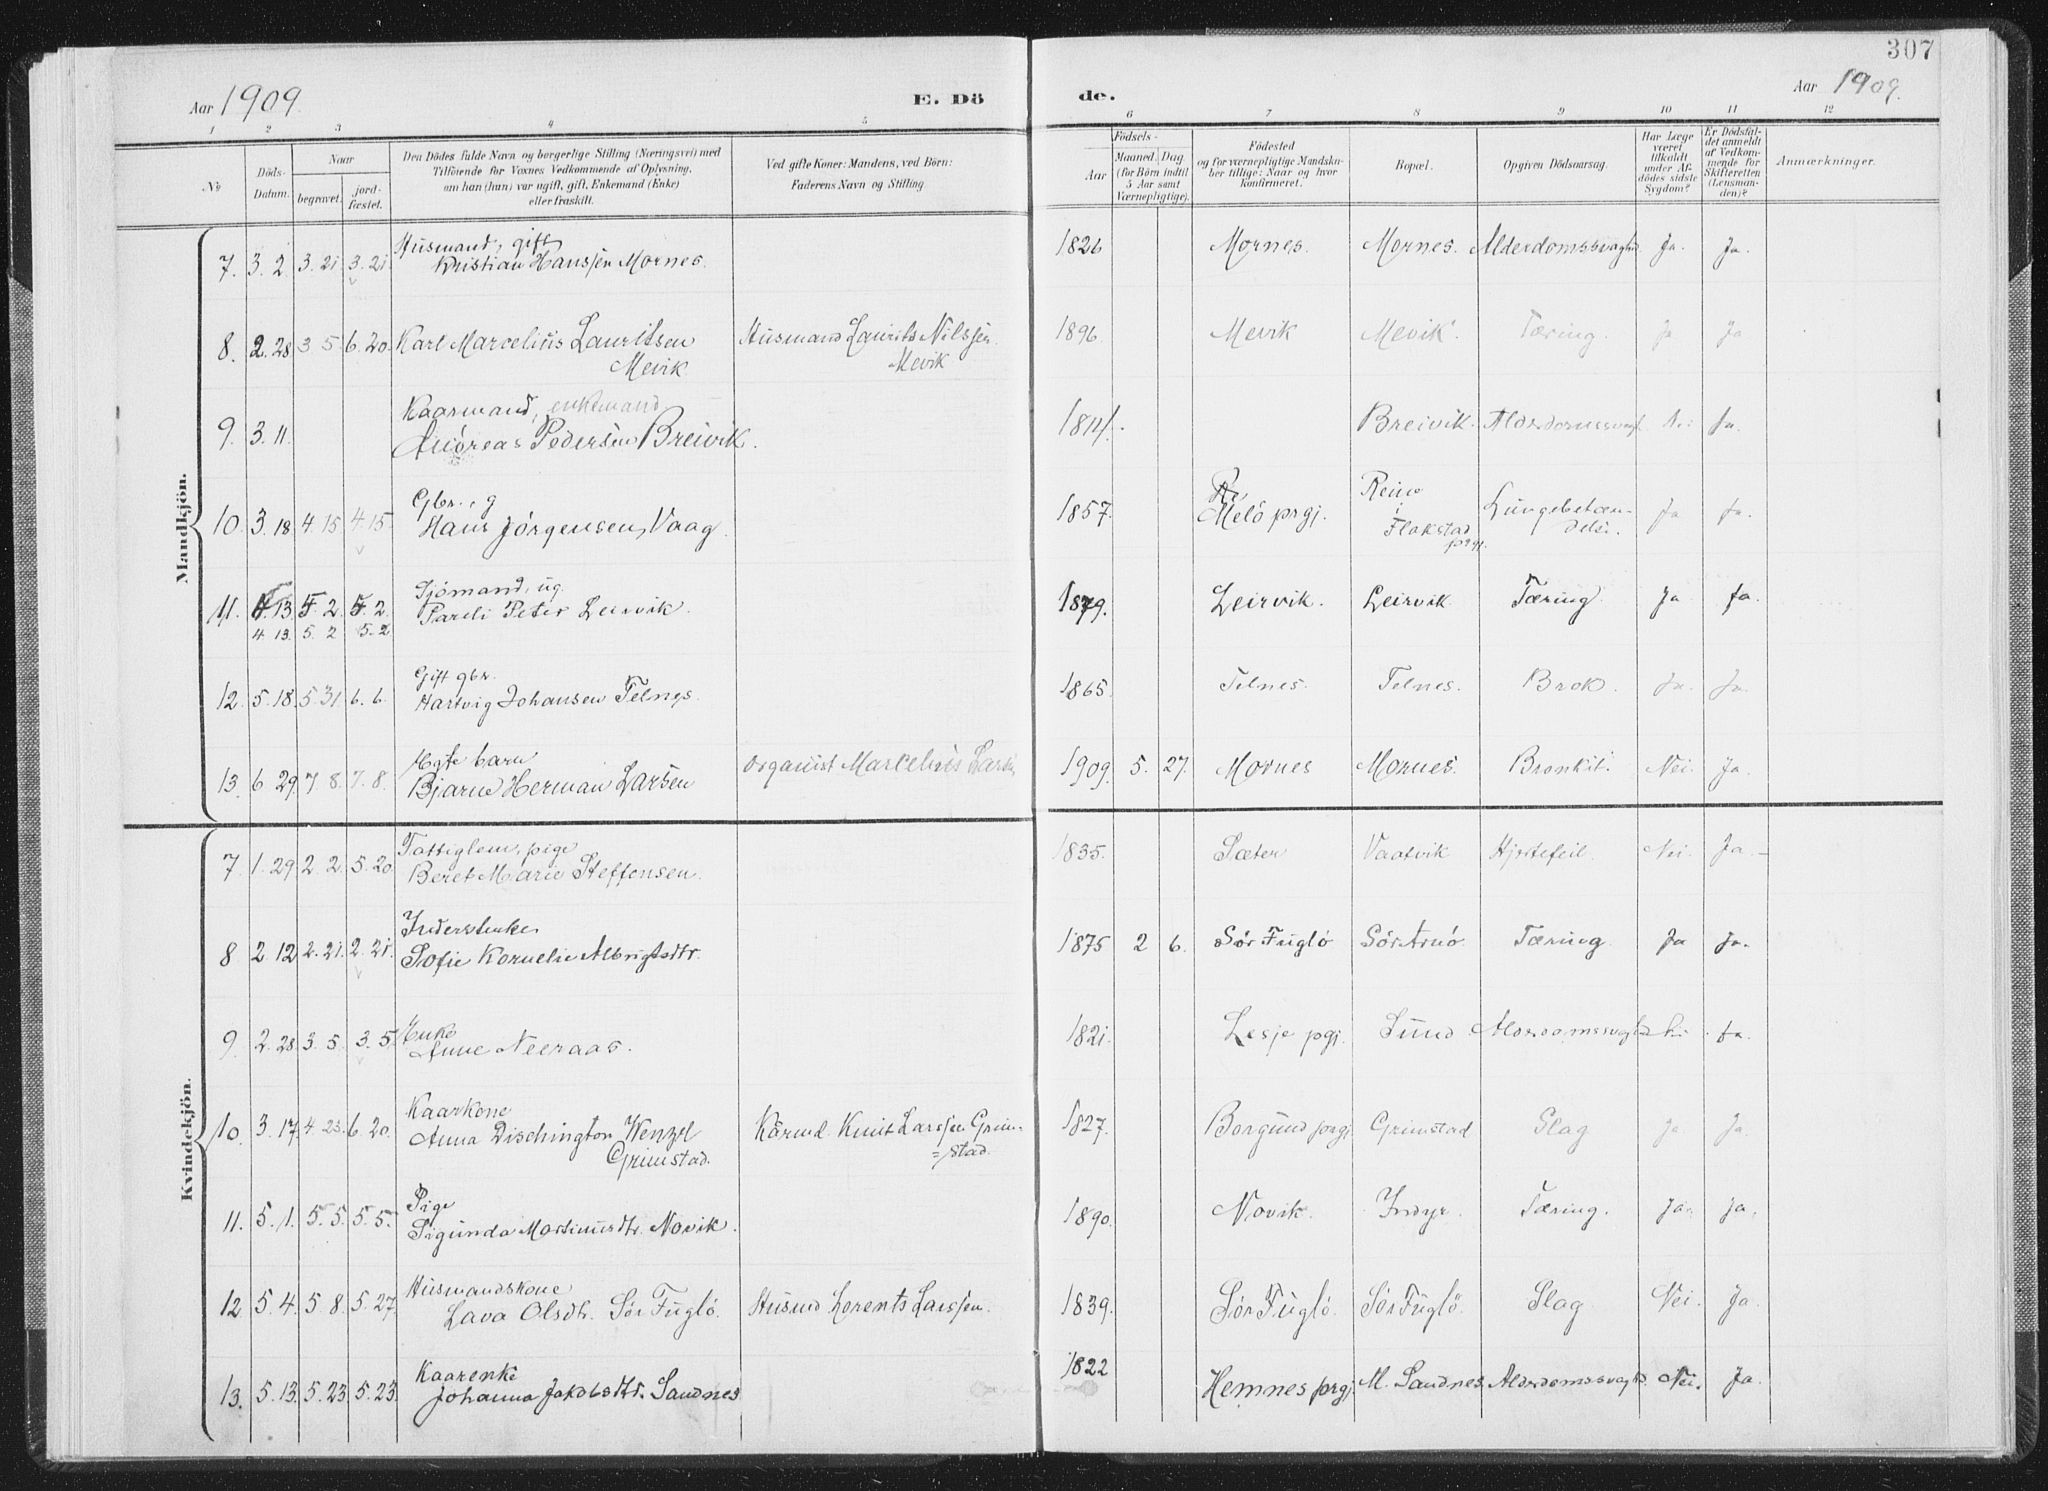 307
Aar 1909.
E. Dö
de.
Aar 1909.
1 2 3 4 5 6 7 8 9 10 11 12
No
Döds-Datum.
Naar
begravet.
jord-fæstet.
Den Dödes fulde Navn og borgerlige Stilling (Næringsvei) med
Tilföiende for Voxnes Vedkommende af Oplysning,
om han (hun) var ugift, gift, Enkemand (Enke)
eller fraskilt.
Ved gifte Koner: Mandens, ved Börn:
Faderens Navn og Stilling.
Födsels-
Aar
Maaned. Dag.
(for Börn indtil
5 Aar samt
Værnepligtige).
Födested
og for værnepligtige Mandska-
ber tillige: Naar og hvor
konfirmeret.
Bopæl.
Opgiven Dödsaarsag.
Har Læge
været
tilkaldt
under Af-
dödes sidste
Sygdom?
Er Dödsfal-
det anmeldt
af Vedkom-
mende for
Skifteretten
(Lensman-
den)?
Anmærkninger.
Mandkjön.
Husmand, gift
7. 3. 2. 3. 21. 3. 21. Kristian Hanssen Mornes. 1826 Mornes. Mornes. Ja. Ja.
8. 2. 28 3 5 6. 20. Karl Marcelius Lauritsen Husmand Laurits Nilssen 1896. Mevik Mevik. Tæring. Ja Ja
Mevik Mevik
Kaarmand, enkemand
9. 3. 11. Andreas Pedersen Breivik. Breivik. Ja.
Gbr., g Reine
10. 3. 18 4. 15 4. 15. Hans Jörgensen, Vaag. 1857. Melö prgj. i Lungebetæn- Ja Ja.
Flakstad delse.
prgj.
Sjömand, ug.
11. 4. 13 5. 2. 5. 2. Pareli Peter Leirvik. 1879. Leirvik. Leirvik. Tæring. Ja Ja.
4. 13. 5. 2 5. 2
Gift gbr.
12. 5. 18. 5 31 6. 6. Hartvig Johansen Telnes. 1865. Telnes. Telnes. Brok. Ja. Ja.
Egte barn
13. 6 29 7. 8. 7. 8. Bjarne Herman Larsen organist Marcelius Larsen 1909. 5. 27. Mornes Mornes. Bronkit. Nei. Ja.
Kvindekjön.
Fattiglem, pige
7. 1. 29 2. 2. 5. 20. Beret Marie Steffensen. 1835. Sæter Vaatvik Hjertefeil. Nei. Ja.
Inderstenke
8 2. 12 2. 21. 2. 21. Sofie Kornelie Albrigtsdtr. 1875 2 6. Sör Fuglö Sör Arnö. Tæring. Ja Ja.
Enke
9. 2. 28. 3. 5. 3. 5. Anne Neeraas. 1821. Lesje pgj. Sund Ja.
Kaarkone
10. 3. 17. 4. 23. 6. 20. Anna Dischington Wenzel Kårmd. Knut Larssen Grim- 1827. Borgund prgj. Grimstad Slag Ja Ja.
Grimstad. =stad.
Pige
11. 5. 1. 5. 5. 5. 5. Sigunda Martinusdtr. Novik. 1890. Novik. Indyr. Tæring. Ja. Ja.
Husmandskone
12 5. 4. 5. 8. 5. 27. Lava Olsdtr. Sör Fuglö. Husmd Lorents Larssen. 1839. Sör Fuglö. Sör Fuglö. Slag Nei. Ja.
Kaarenke
13. 5. 13. 5. 23. 5. 23. Johanna Jakobsdtr. Sandnes 1822 Hemnes prgj. M. Sandnes. Nei. Ja.